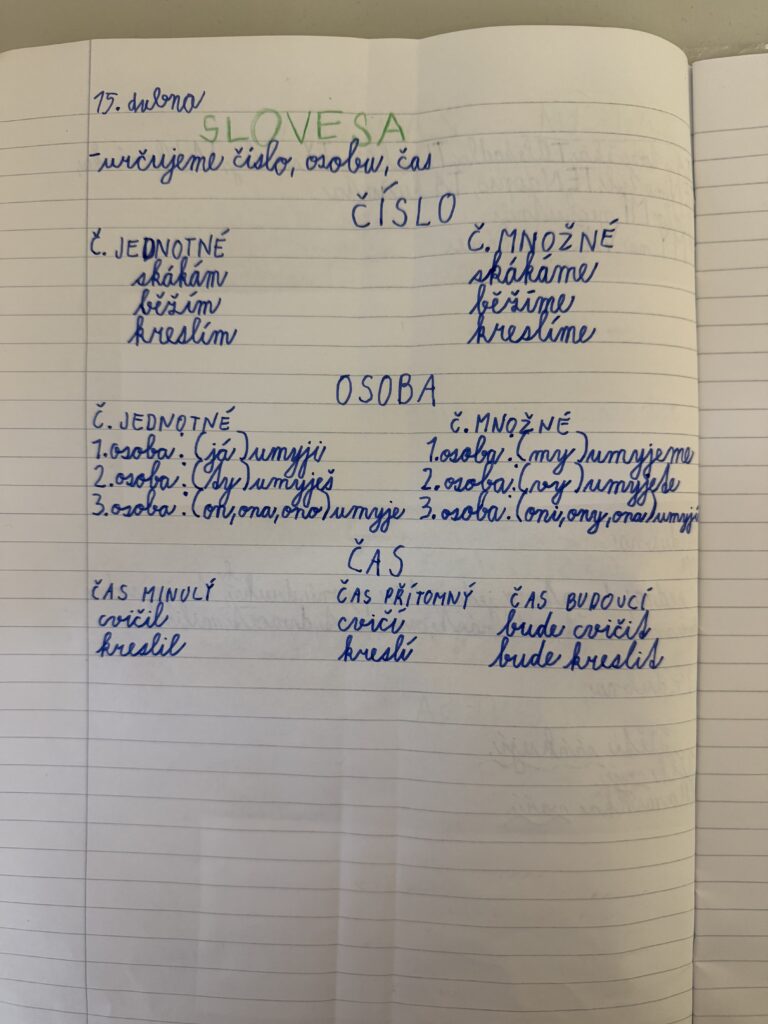 15. dubna
SLOVESA
-určujeme číslo, osobu, čas
ČÍSLO
Č. JEDNOTNÉ Č. MNOŽNÉ
skákám skákáme
běžím běžíme
kreslím kreslíme
OSOBA
Č. JEDNOTNÉ Č. MNOŽNÉ
1. osoba: (já) umyji 1. osoba: (my) umyjeme
2. osoba: (ty) umyješ 2. osoba: (vy) umyjete
3. osoba: (on, ona, ono) umyje 3. osoba: (oni, ony, ona) umyjí
ČAS
ČAS MINULÝ ČAS PŘÍTOMNÝ ČAS BUDOUCÍ
cvičil cvičí bude cvičit
kreslil kreslí bude kreslit